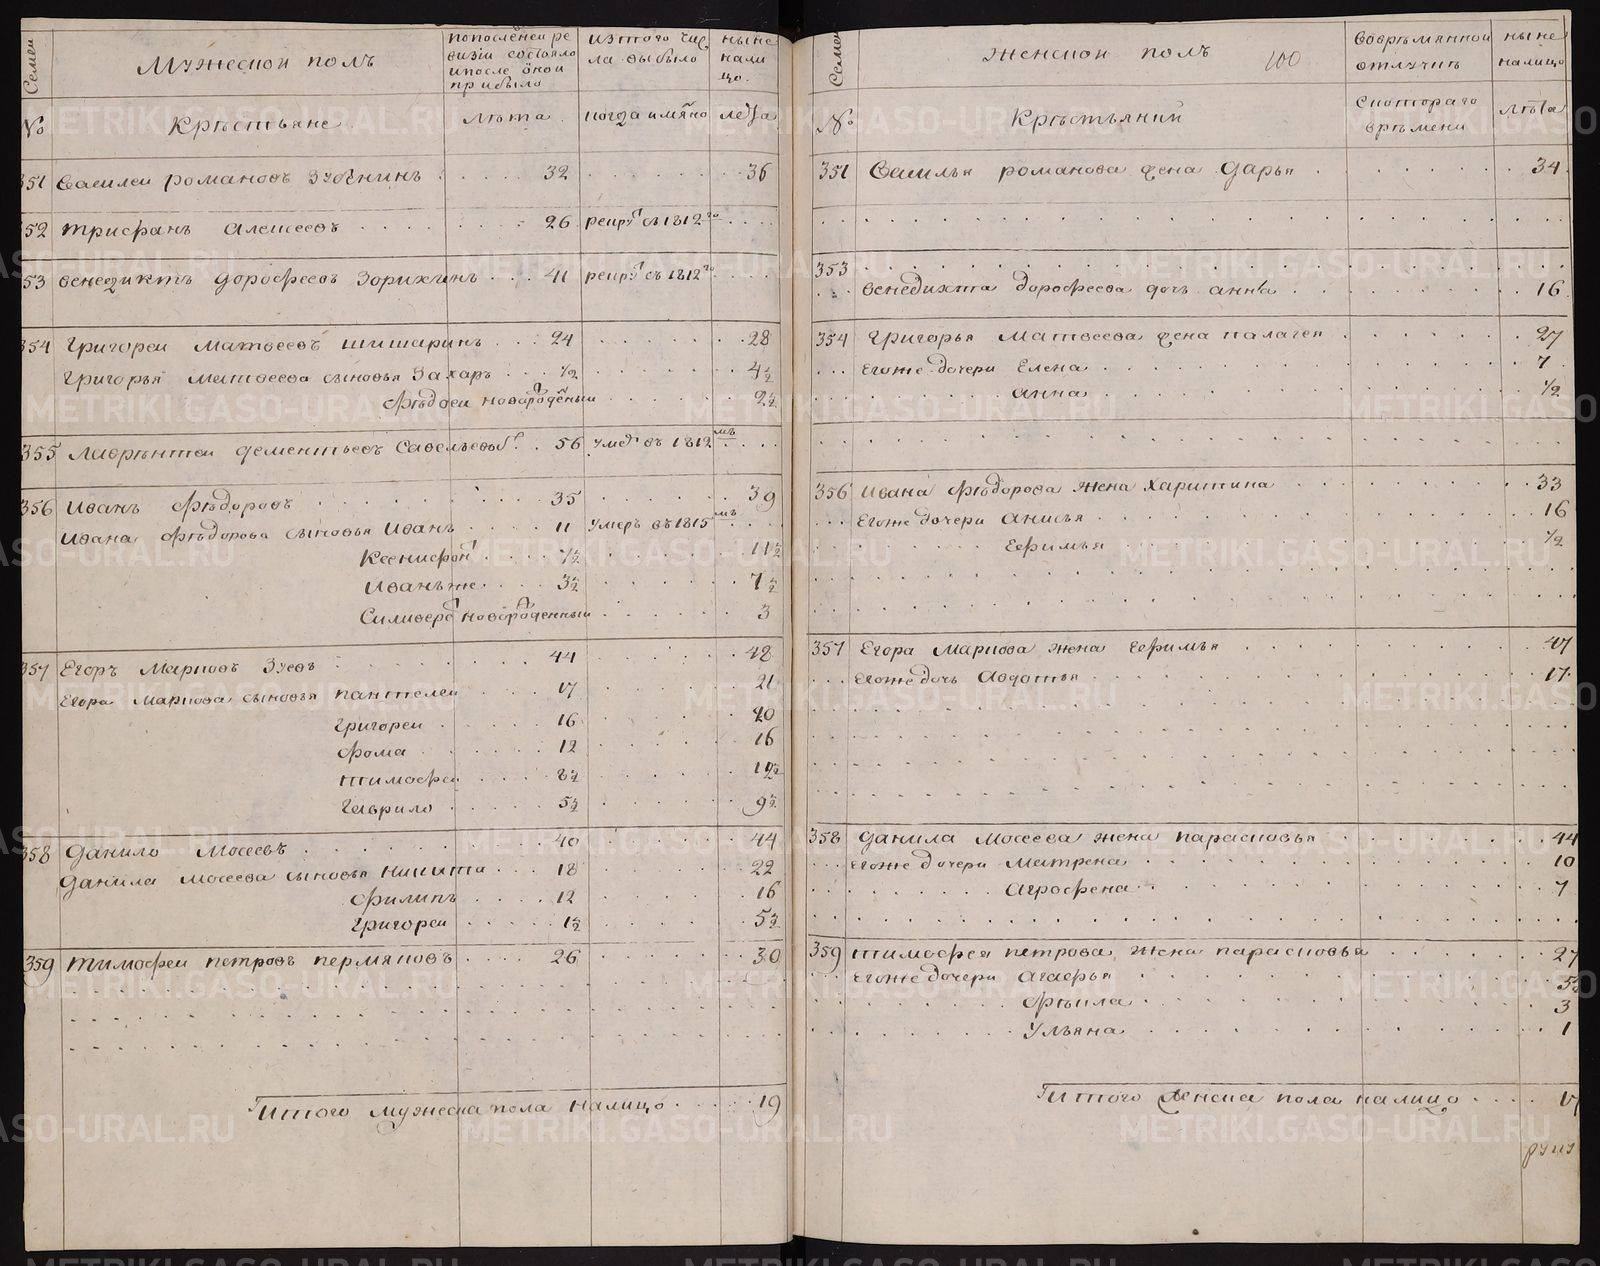 Семеи
Мужескои полъ
По последнеи ре
визiи состояло
и после онои
прибыло
Из того чис
ла выбыло
Ныне
нали
цо.
№
Крѣстьяне
Лѣта
когда имяно
леѣта
351 Василеи романовъ 32 36
352 Трифанъ Алексеевъ 26 рекрут въ 1812 го
353 Венедиктъ Дорофеевъ Зорихинъ 41 рекрут въ 1812 го
354 Григореи Матвеевъ Шишаринъ 24 28
Григорья Матвеева сыновья Захаръ ½ 4½
Фѣдоси новорожденыи 2½
355 Лаврѣнтеи Дементьевъ 56 умер въ 1812 мъ
356 Иванъ Фѣдоровъ 35 39
Ивана Фѣдорова сыновья Иванъ 11 умеръ въ 1815 мъ
Ксенифонт 7½ 11½
Иванъ же 3½ 7½
Силиверст новорожденныи 3
357 Егоръ Марковъ Зуевъ 44 48
Егора Маркова сыновья Пантелеи 17 21
Григореи 16 20
Фома 12 16
Тимофеи 8½ 12½
Гаврило 5½ 9½
358 Данило Мосеевъ 40 44
Данила Мосеева сыновья Никита 18 22
Филипъ 12 16
Григореи 1½ 5½
359 Тимофеи Петровъ Пермяковъ 26 30
Итого мужеска пола налицо 19
Семеи
Женскои полъ
100
Во врѣмянной
отлучкѣ
Ныне
налицо
№
Крѣстьянки
С котораго
врѣмени
Лѣта
351 Василья романова жена Дарья 34
353
Венедихта Дорофеева дочь Анна 16
354 Григорья Матвеева жена Палагея 27
Его же дочери Елена 7
Анна ½
356 Ивана Фѣдорова жена Харитина 33
Его же дочери Анисья 16
Ефимья ½
357 Егора Маркова жена Ефимья 47
Его же дочь Авдотья 17
358 Данила Мосеева жена Парасковья 44
Его же дочери Матрена 10
Агрофена 7
359 Тимофея Петрова жена Парасковья 27
Его же дочери Агафья 5½
Фѣкла 3
Ульяна 1
Итого женска пола налицо 17
METRIKI.GASO-URAL.RU